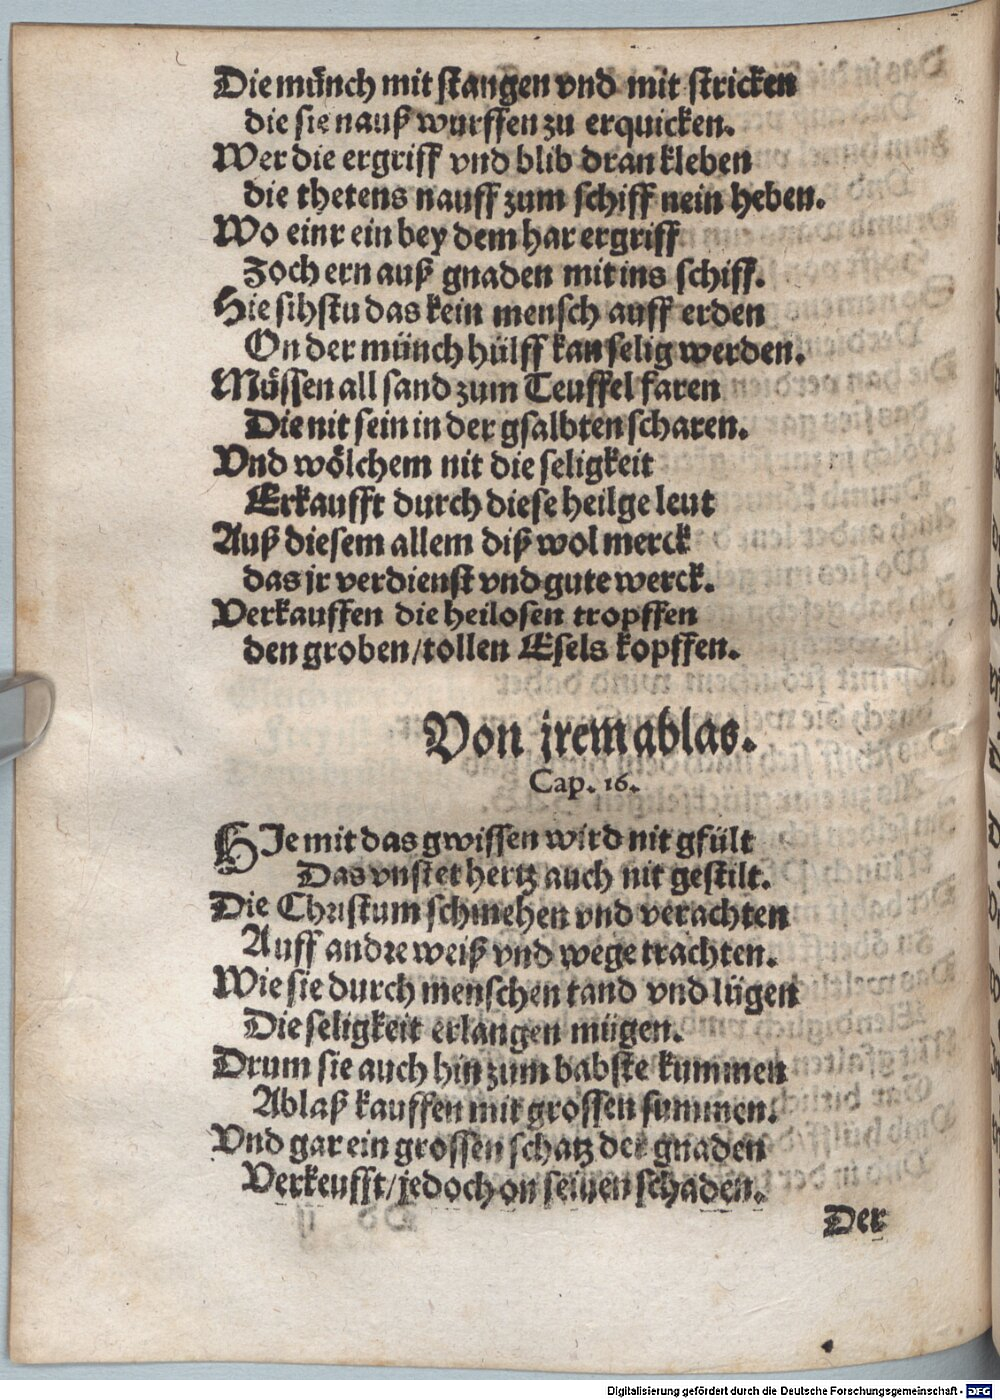 Die münch mit stangen vnd mit stricken
die sie nauß wurffen zu erquicken.
Wer die ergriff vnd blib dran kleben
die thetens nauff zum schiff nein heben.
Wo einr ein bey dem har ergriff
Zoch ern auß gnaden mit ins schiff.
Hie sihstu das kein mensch auff erden
On der münch hülff kan selig werden.
Müssen all sand zum Teuffel faren
Die nit sein in der gsalbten scharen.
Vnd wölchem nit die seligkeit
Erkaufft durch diese heilge leut
Auß diesem allem diß wol merck
das jr verdienst vnd gute werck.
Verkauffen die heilosen tropffen
den groben/tollen Esels kopffen.
Von jrem ablas.
Cap. 16.
HIe mit das gwissen wird nit gfült
Das vnstet hertz auch nit gestilt.
Die Christum schmehen vnd verachten
Auff andre weiß vnd wege trachten.
Wie sie durch menschen tand vnd lügen
Die seligkeit erlangen mügen.
Drum sie auch hin zum babste kummen
Ablaß kauffen mit grossen summen.
Vnd gar ein grossen schatz der gnaden
Verkeufft/jedoch on seinen schaden.
Der
Digitalisierung gefördert durch die Deutsche Forschungsgemeinschaft - DFG